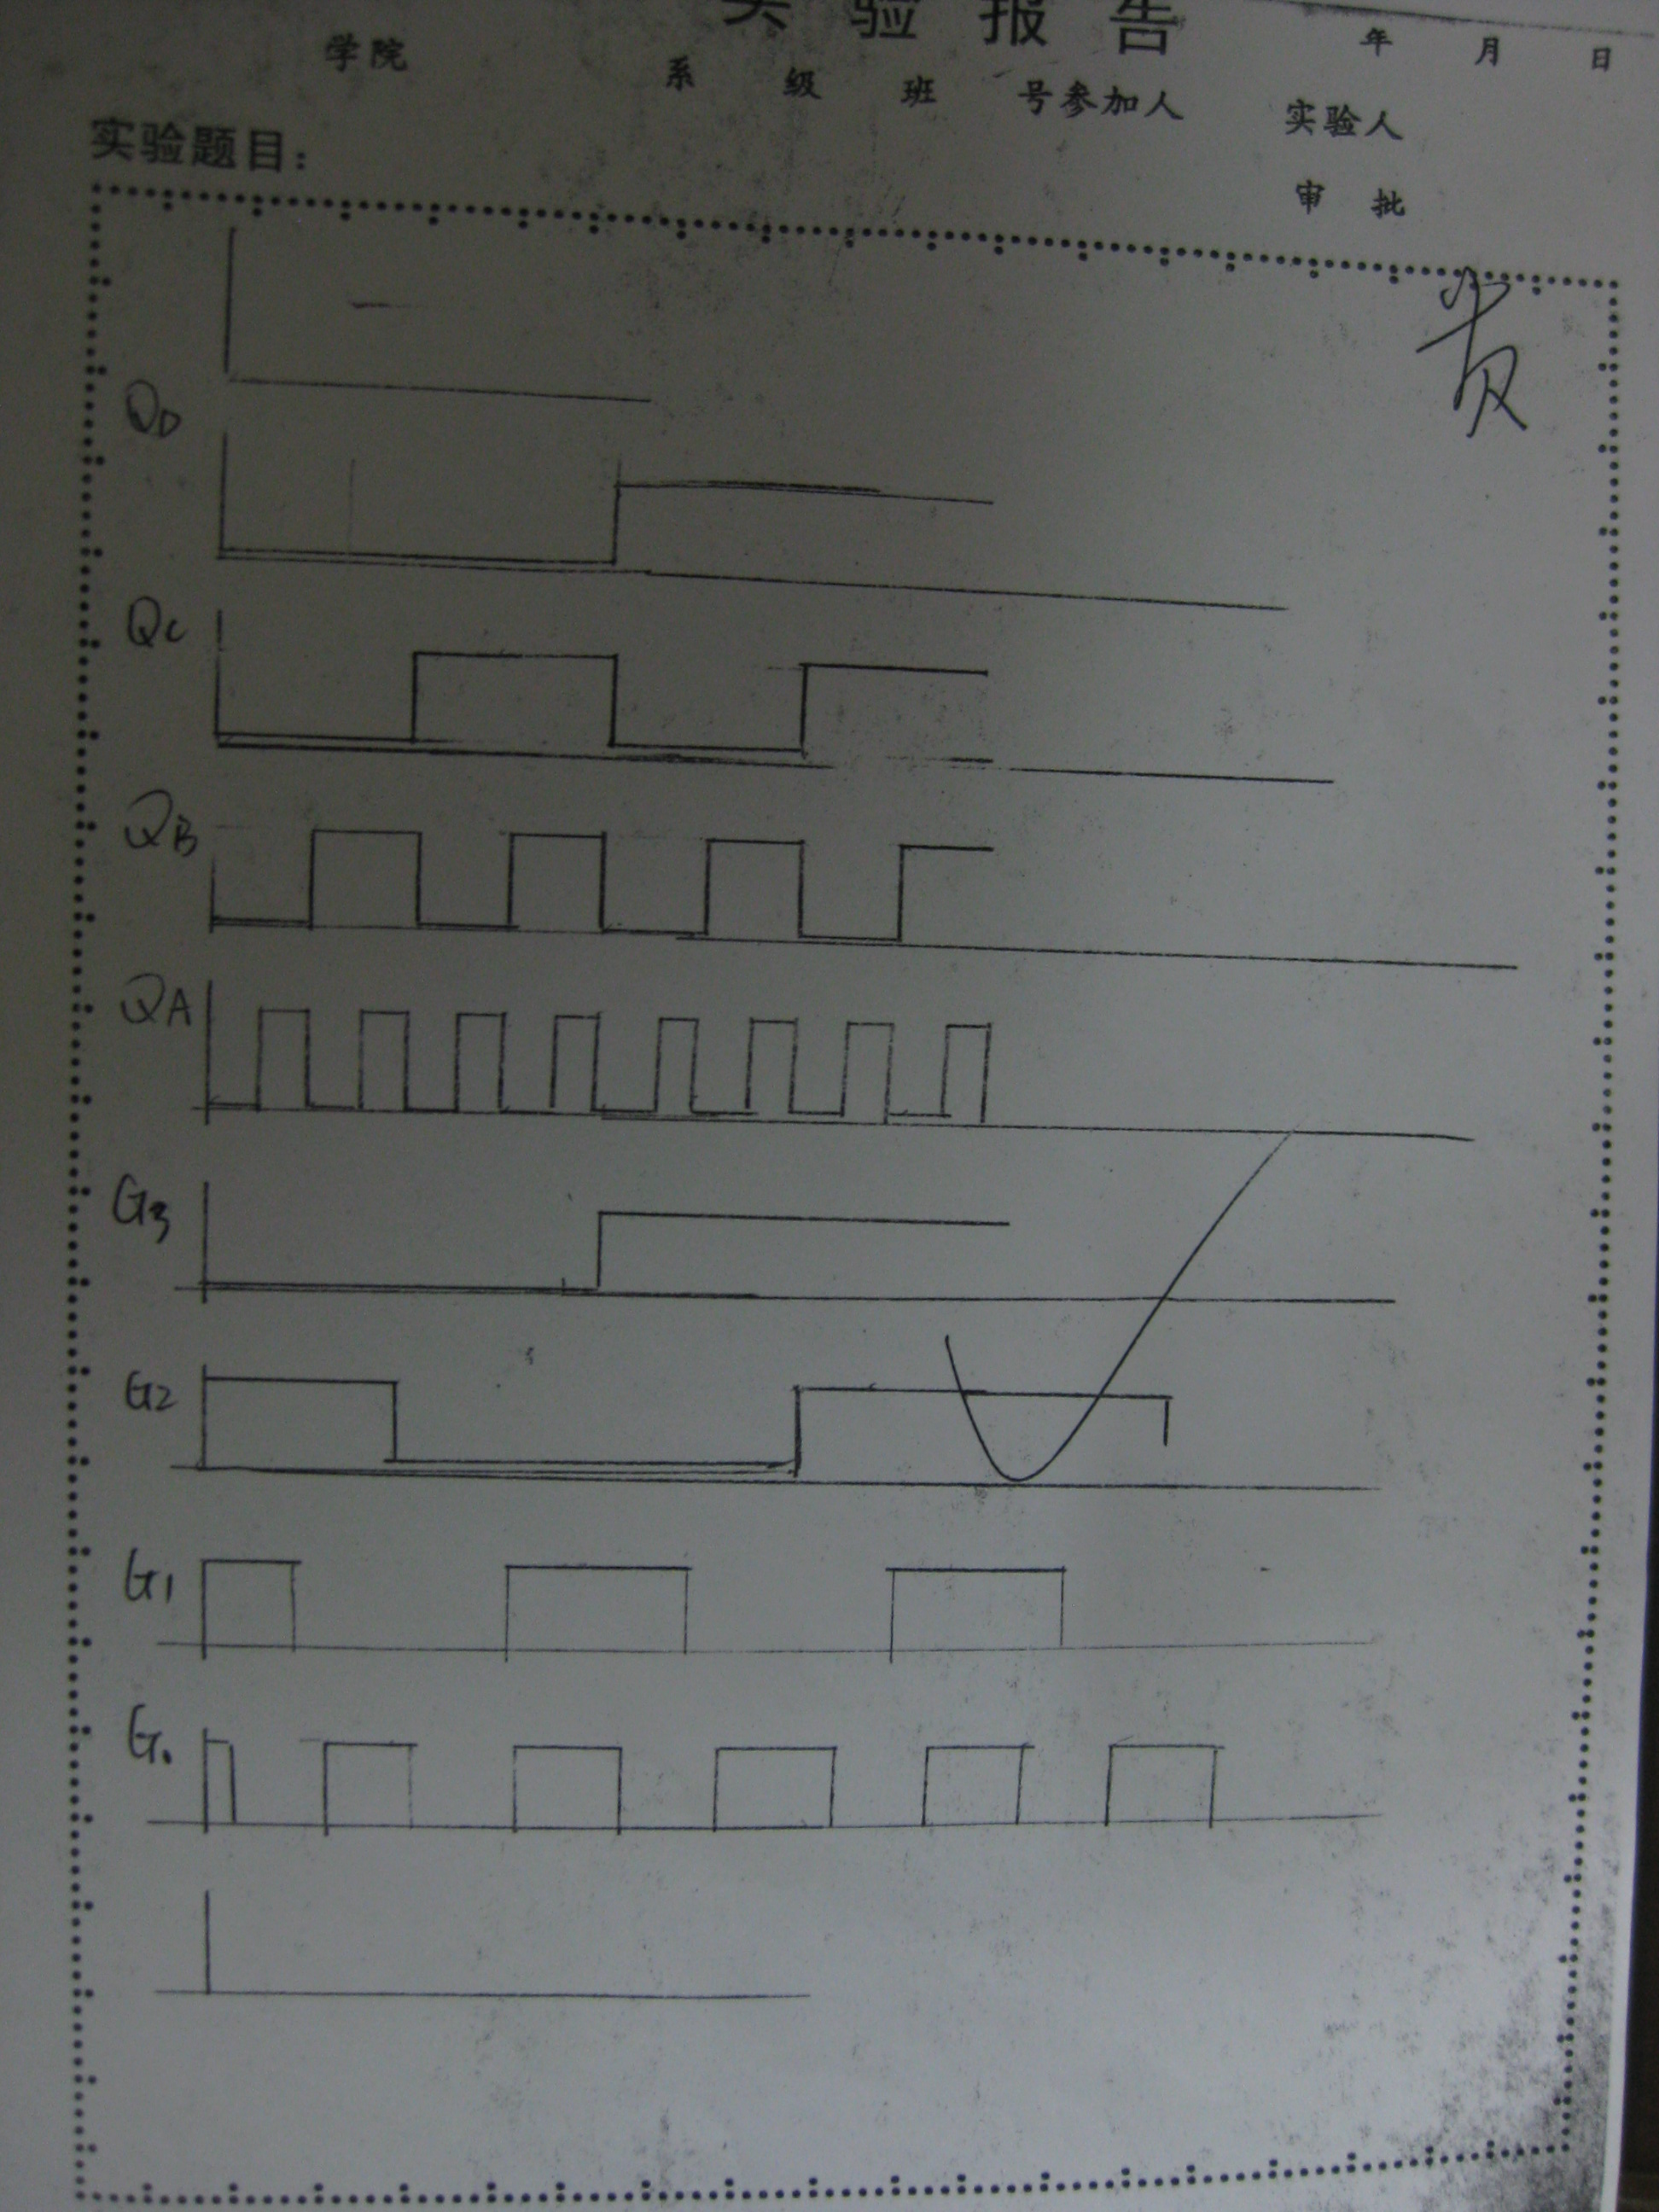 实验报告
年 月 日
学院 系 级 班 号参加人 实验人
实验题目：
审 批
QD
QC
QB
QA
G3
G2
G1
G0